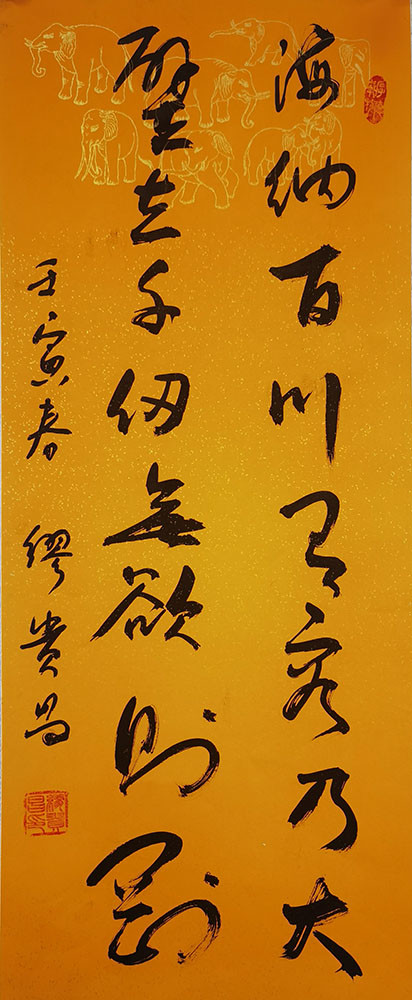 海纳百川有容乃大
壁立千仞無欲则刚
壬寅春 缪贵昌